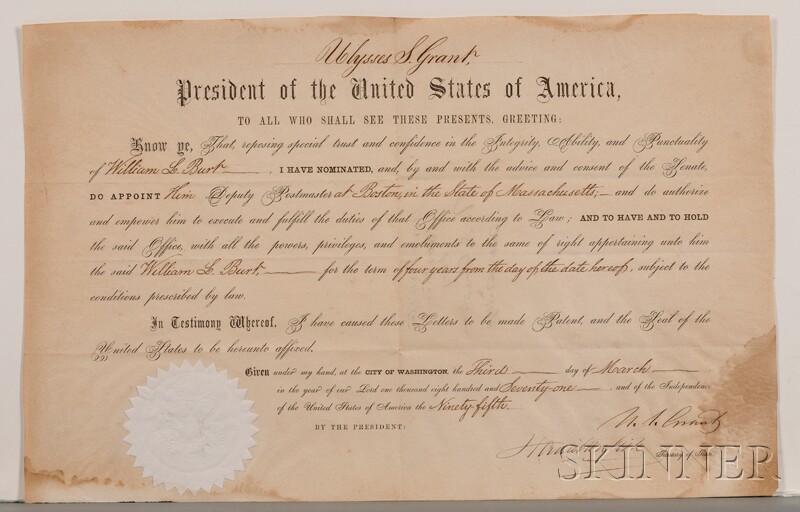 Ulysses S. Grant,
President of the United States of America,
TO ALL WHO SHALL SEE THESE PRESENTS, GREETING:
Know ye, That, reposing special trust and confidence in the Integrity, Ability, and Punctuality
of William L. Burt, I HAVE NOMINATED, and, by and with the advice and consent of the Senate,
DO APPOINT Him Deputy Postmaster at Boston, in the State of Massachusetts; and do authorize
and empower him to execute and fulfill the duties of that Office according to Law; AND TO HAVE AND TO HOLD
the said Office, with all the powers, privileges, and emoluments to the same of right appertaining unto him
the said William L. Burt, for the term of four years from the day of the date hereof, subject to the
conditions prescribed by law.
In Testimony Whereof, I have caused these Letters to be made Patent, and the Seal of the
United States to be hereunto affixed.
Given under my hand, at the CITY OF WASHINGTON, the Third day of March
in the year of our Lord one thousand eight hundred and Seventy-one, and of the Independence
of the United States of America the Ninety-fifth.
U. S. Grant
BY THE PRESIDENT:
Secretary of State.
SKINNER